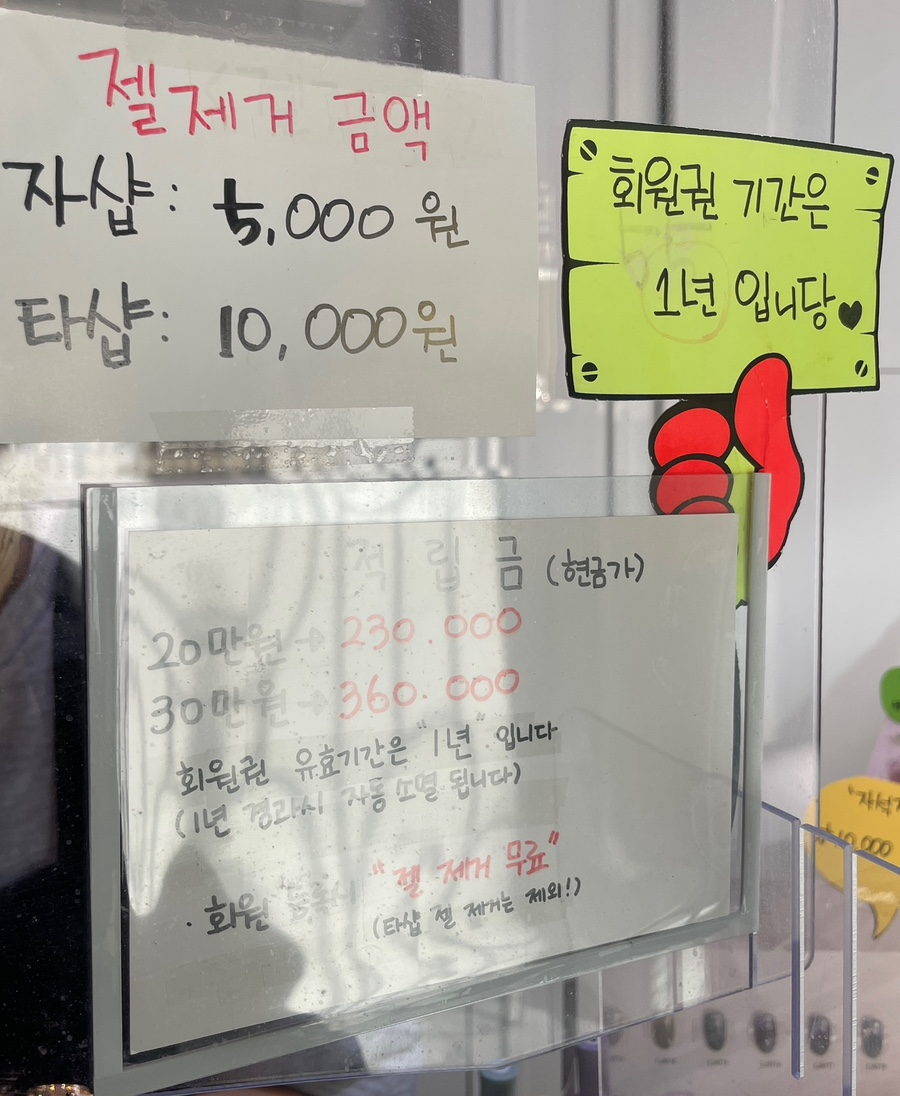 젤제거 금액
자샵: 5,000원
타샵: 10,000원
회원권 기간은
1년 입니당♥
적립금 (현금가)
20만원→230.000
30만원→360.000
회원권 유효기간은 "1년" 입니다
(1년 경과시 자동 소멸 됩니다)
· 회원 등록시 "젤 제거 무료"
(타샵 젤 제거는 제외!)
10,000